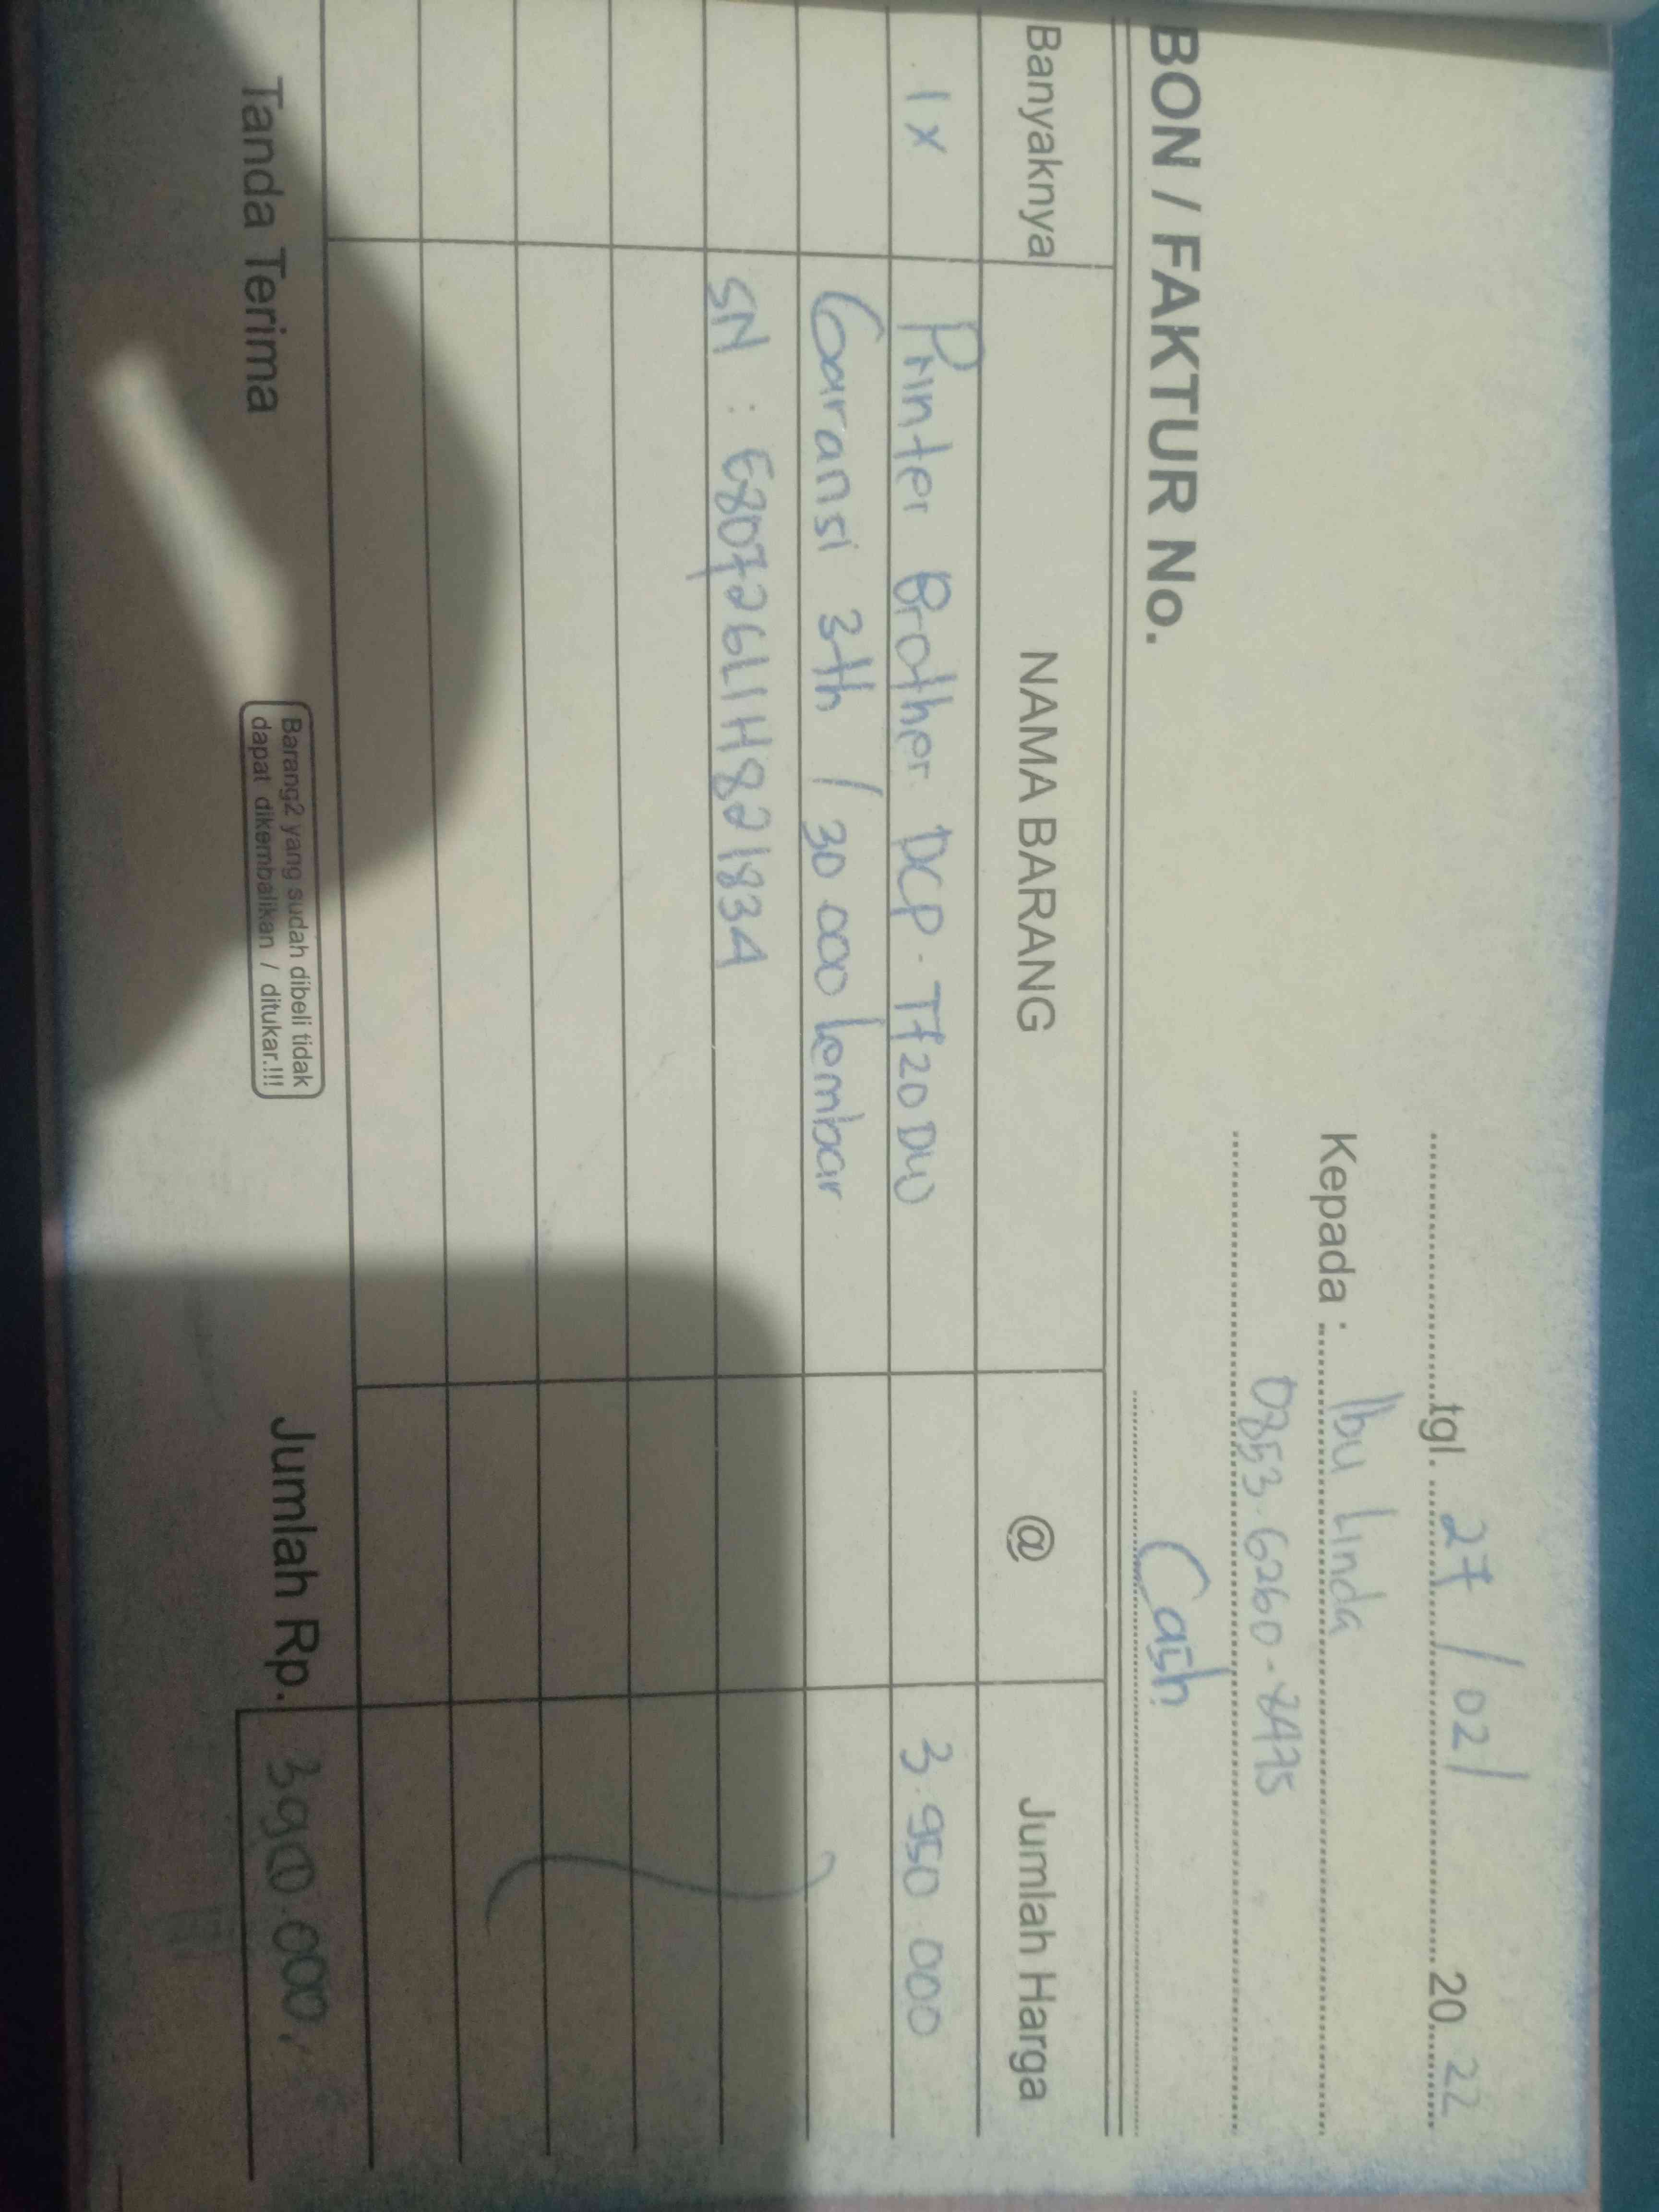 tgl. 27 / 02 / 20 22
Kepada : Ibu Linda
BON / FAKTUR No.
Cash
Banyaknya NAMA BARANG @ Jumlah Harga
1 x Printer Brother DCP - T720DW 3.950.000
Garansi 3th / 30.000 lembar
SN :
Tanda Terima
Barang2 yang sudah dibeli tidak
dapat dikembalikan / ditukar.!!!
Jumlah Rp.